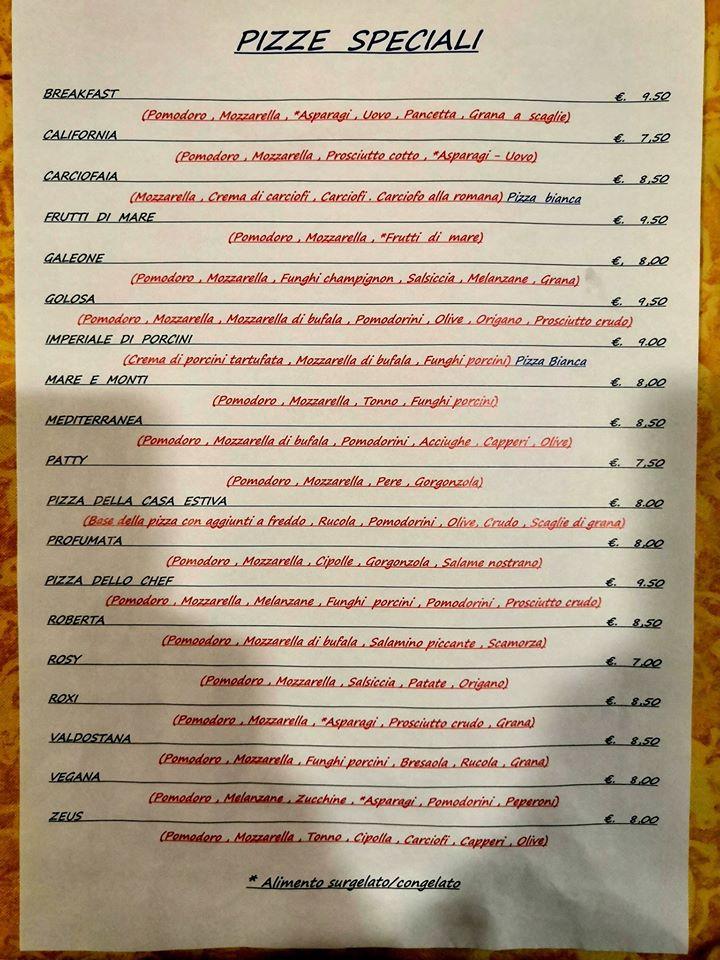 PIZZE SPECIALI
BREAKFAST €. 9.50
(Pomodoro , Mozzarella , *Asparagi , Uovo , Pancetta , Grana a scaglie)
CALIFORNIA €. 7,50
(Pomodoro , Mozzarella , Prosciutto cotto , *Asparagi - Uovo)
CARCIOFAIA €. 8,50
(Mozzarella , Crema di carciofi , Carciofi . Carciofo alla romana) Pizza bianca
FRUTTI DI MARE €. 9.50
(Pomodoro , Mozzarella , *Frutti di mare)
GALEONE €, 8,00
(Pomodoro , Mozzarella , Funghi champignon , Salsiccia , Melanzane , Grana)
GOLOSA €. 9,50
(Pomodoro , Mozzarella , Mozzarella di bufala , Pomodorini , Olive , Origano , Prosciutto crudo)
IMPERIALE DI PORCINI €. 9.00
(Crema di porcini tartufata , Mozzarella di bufala , Funghi porcini) Pizza Bianca
MARE E MONTI €. 8,00
(Pomodoro , Mozzarella , Tonno , Funghi porcini)
MEDITERRANEA €. 8,50
(Pomodoro , Mozzarella di bufala , Pomodorini , Acciughe , Capperi , Olive)
PATTY €. 7,50
(Pomodoro , Mozzarella , Pere , Gorgonzola)
PIZZA DELLA CASA ESTIVA €. 8.00
(Base della pizza con aggiunti a freddo , Rucola , Pomodorini , Olive, Crudo , Scaglie di grana)
PROFUMATA €. 8,00
(Pomodoro , Mozzarella , Cipolle , Gorgonzola , Salame nostrano)
PIZZA DELLO CHEF €. 9.50
(Pomodoro , Mozzarella , Melanzane , Funghi porcini , Pomodorini , Prosciutto crudo)
ROBERTA €. 8,50
(Pomoodoro , Mozzarella di bufala , Salamino piccante , Scamorza)
ROSY €. 7.00
(Pomodoro , Mozzarella , Salsiccia , Patate , Origano)
ROXI €. 8,50
(Pomodoro , Mozzarella , *Asparagi , Prosciutto crudo , Grana)
VALDOSTANA €. 8,50
(Pomodoro , Mozzarella , Funghi porcini , Bresaola , Rucola , Grana)
VEGANA €. 8,00
(Pomodoro , Melanzane , Zucchine , *Asparagi , Pomodorini , Peperoni)
ZEUS €. 8,00
(Pomodoro , Mozzarella , Tonno , Cipolla , Carciofi , Capperi , Olive)
* Alimento surgelato/congelato